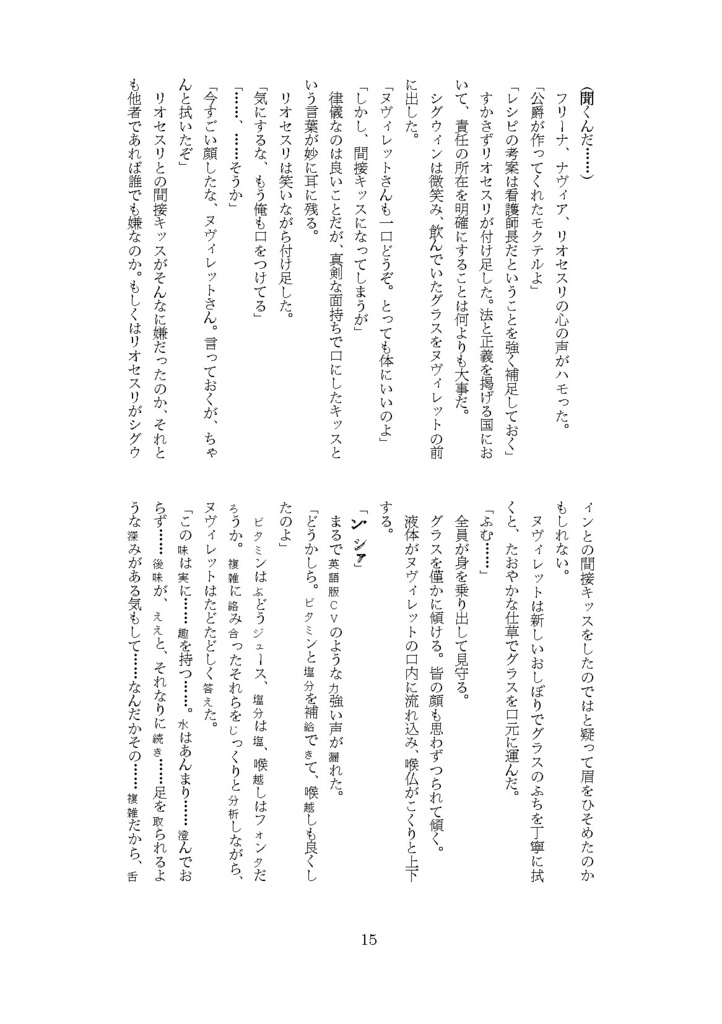 (聞くんだ……)
　フリーナ、ナヴィア、リオセスリの心の声がハモった。
「公爵が作ってくれたモクテルよ」
「レシピの考案は看護師長だということを強く補足しておく」
　すかさずリオセスリが付け足した。法と正義を掲げる国にお
いて、責任の所在を明確にすることは何よりも大事だ。
　シグウィンは微笑み、飲んでいたグラスをヌヴィレットの前
に出した。
「ヌヴィレットさんも一口どうぞ。とっても体にいいのよ」
「しかし、間接キッスになってしまうが」
　律儀なのは良いことだが、真剣な面持ちで口にしたキッスと
いう言葉が妙に耳に残る。
　リオセスリは笑いながら付け足した。
「気にするな、もう俺も口をつけてる」
「……、……そうか」
「今すごい顔したな、ヌヴィレットさん。言っておくが、ちゃ
んと拭いたぞ」
　リオセスリとの間接キッスがそんなに嫌だったのか、それと
も他者であれば誰でも嫌なのか。もしくはリオセスリがシグウ
ィンとの間接キッスをしたのではと疑って眉をひそめたのか
もしれない。
　ヌヴィレットは新しいおしぼりでグラスのふちを丁寧に拭
くと、たおやかな仕草でグラスを口元に運んだ。
「ふむ……」
　全員が身を乗り出して見守る。
　グラスを僅かに傾ける。皆の顔も思わずつられて傾く。
　液体がヌヴィレットの口内に流れ込み、喉仏がこくりと上下
する。
「ン・シァ」
　まるで英語版ＣＶのような力強い声が漏れた。
「どうかしら。ビタミンと塩分を補給できて、喉越しも良くし
たのよ」
　ビタミンはぶどうジュース、塩分は塩、喉越しはフォンタだ
ろうか。複雑に絡み合ったそれらをじっくりと分析しながら、
ヌヴィレットはたどたどしく答えた。
「この味は実に……趣を持つ……。水はあんまり……澄んでお
らず……後味が、ええと、それなりに続き……足を取られるよ
うな深みがある気もして……なんだかその……複雑だから、舌
15